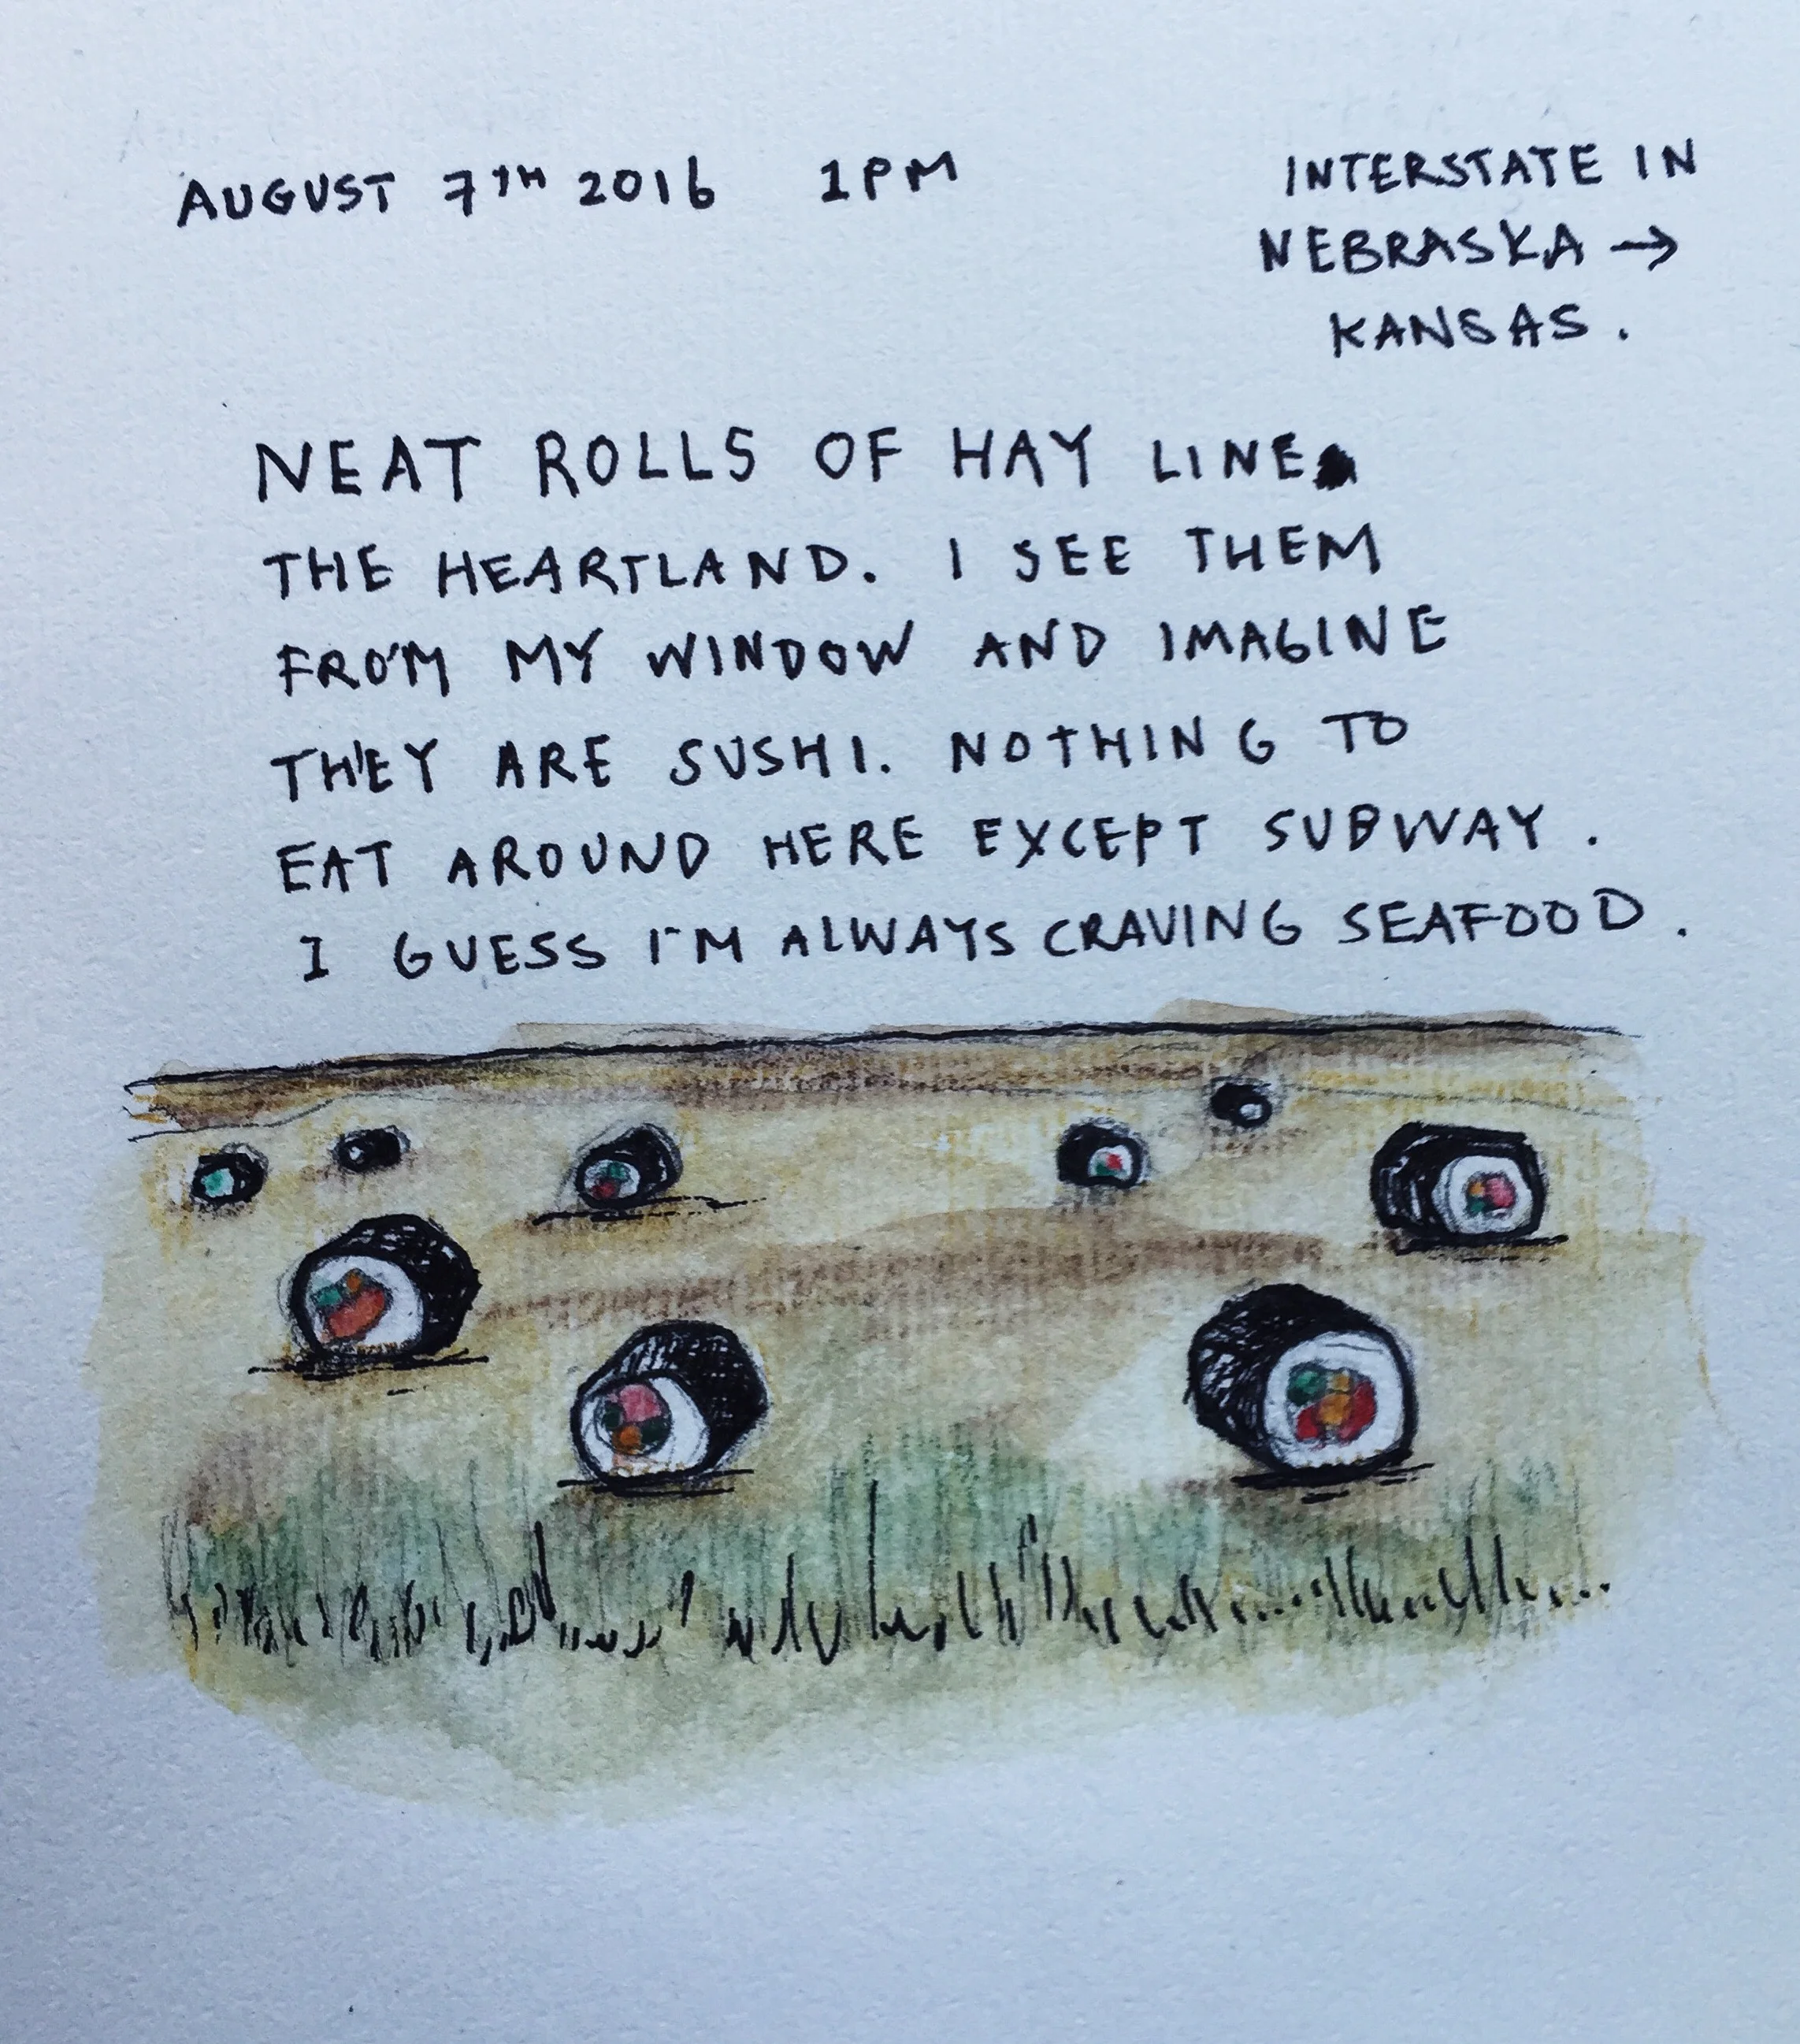 AUGUST 7TH 2016 1PM
INTERSTATE IN
NEBRASKA →
KANSAS.
NEAT ROLLS OF HAY LINE
THE HEARTLAND. I SEE THEM
FROM MY WINDOW AND IMAGINE
THEY ARE SUSHI. NOTHING TO
EAT AROUND HERE EXCEPT SUBWAY.
I GUESS I'M ALWAYS CRAVING SEAFOOD.